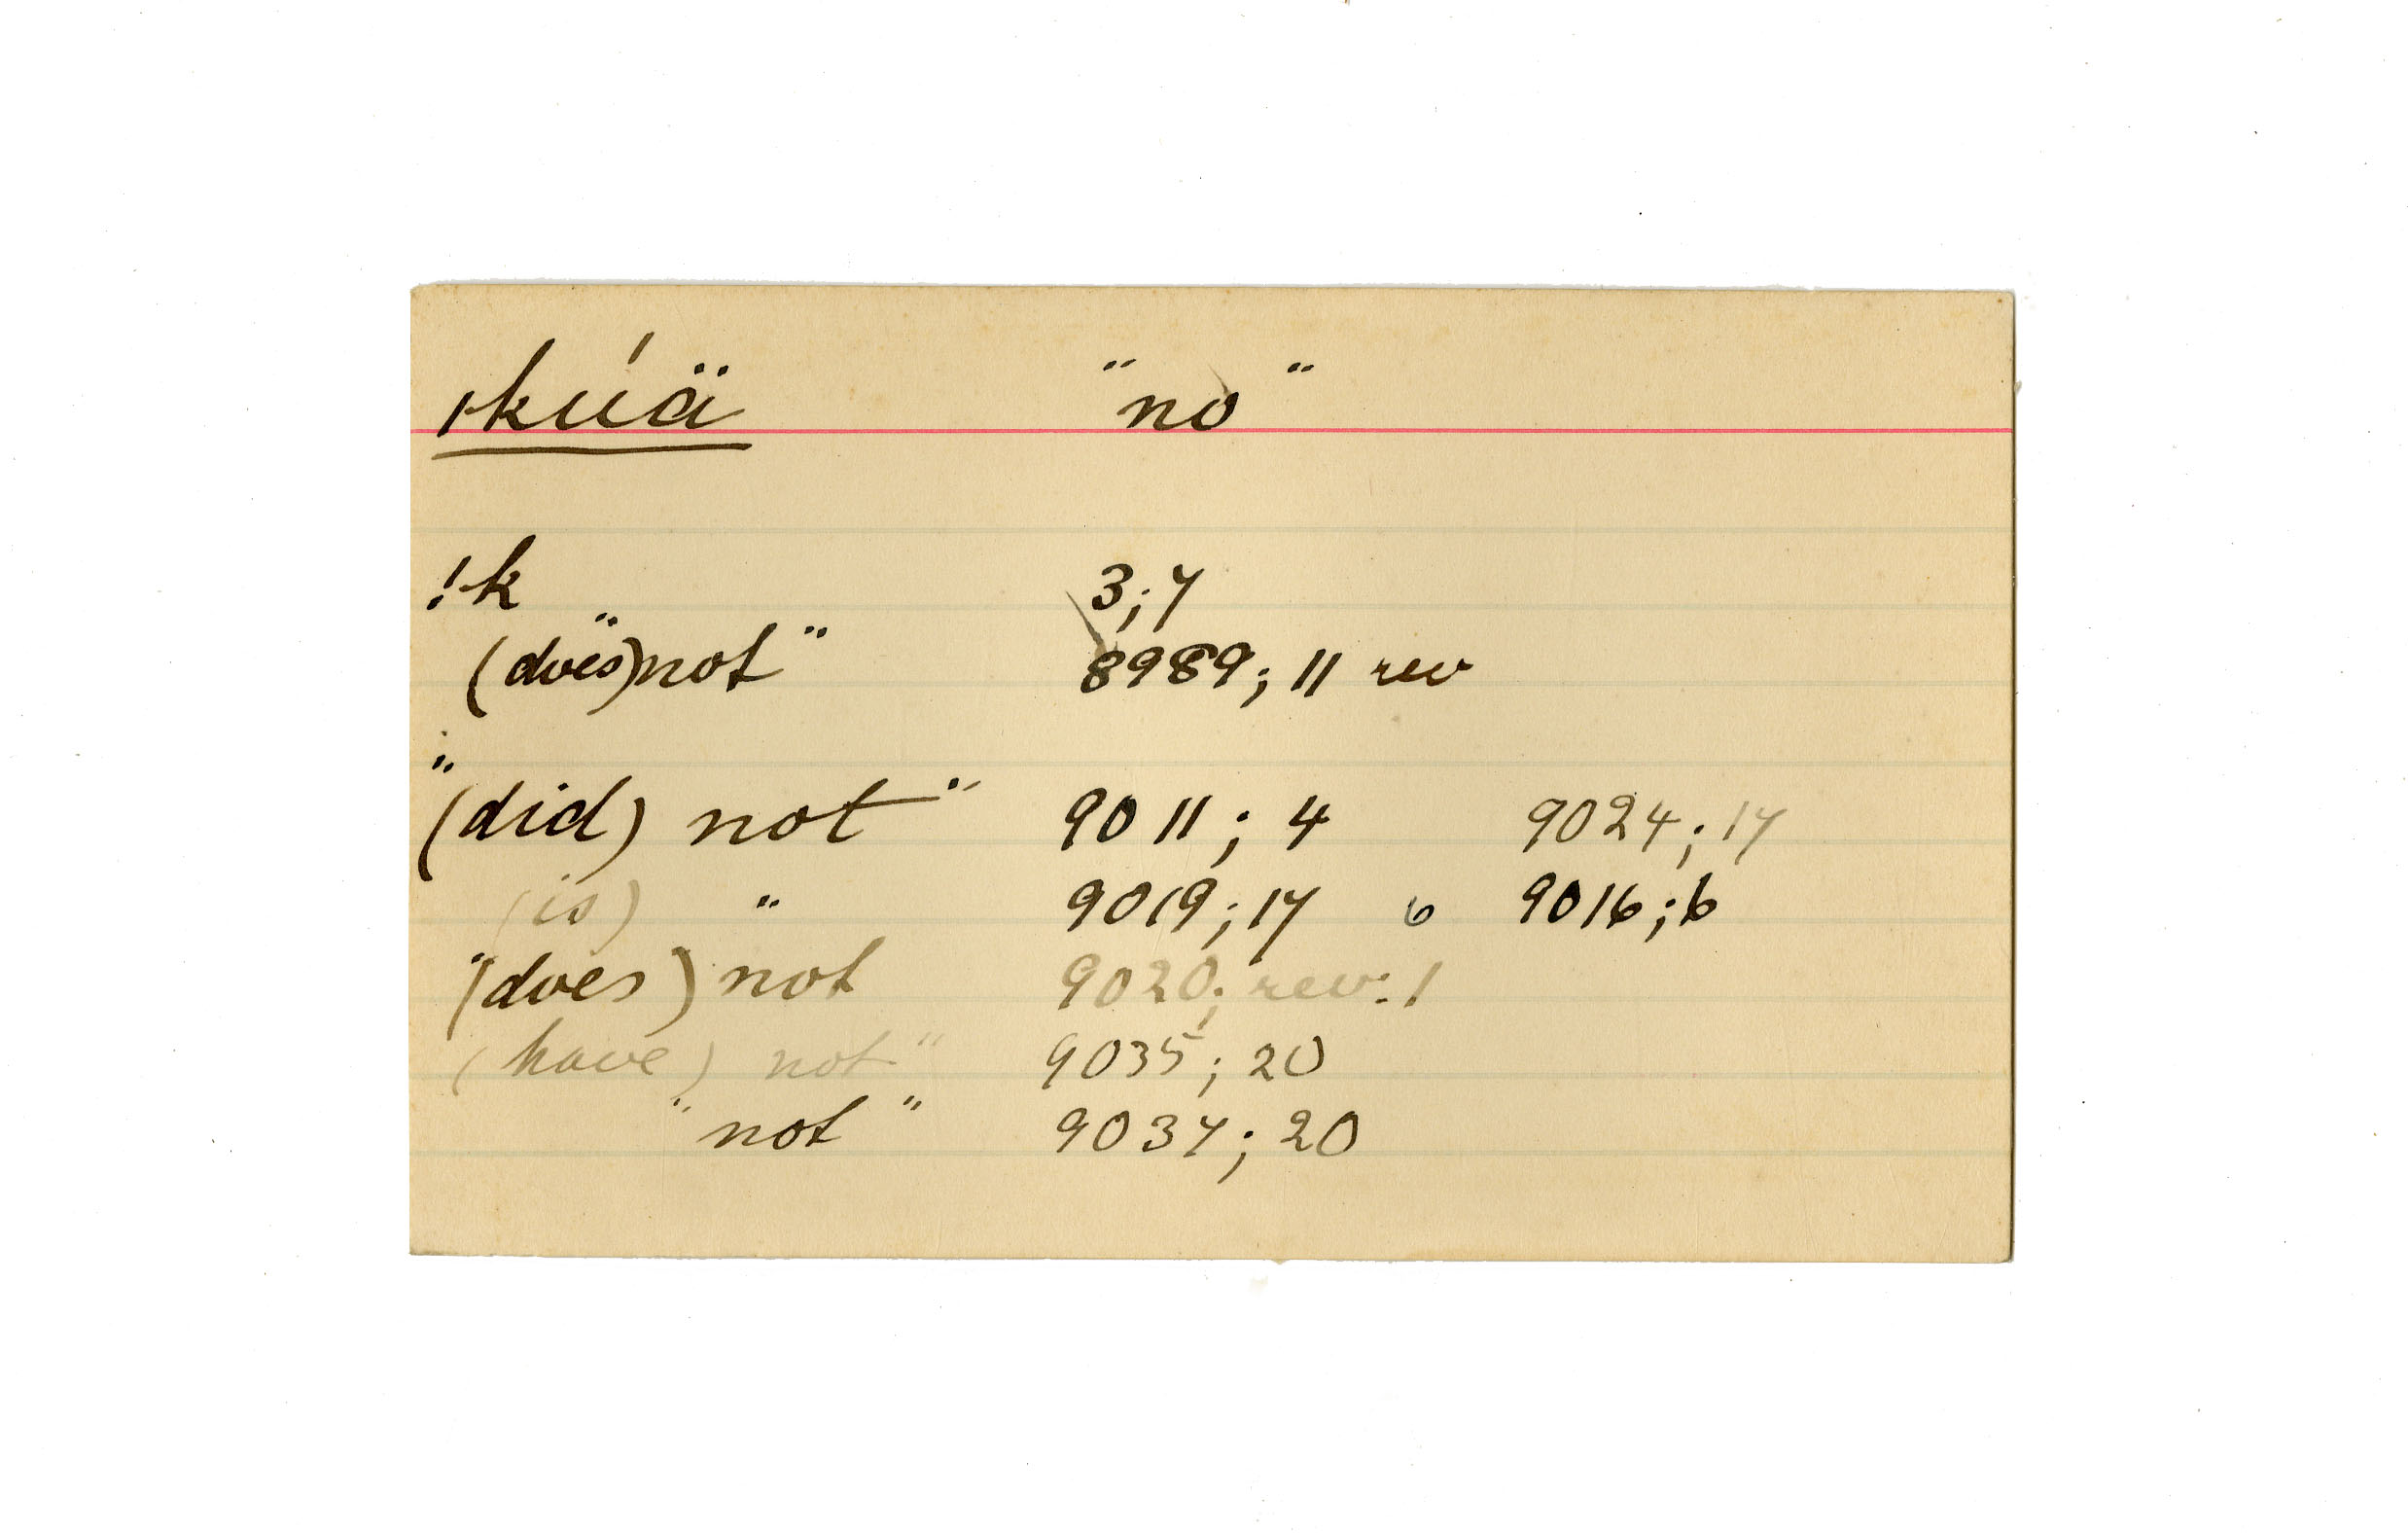 ıkúä "no"
!k 3;7
"(does) not" 8989; 11 rev
"(did) not" 9011; 4 9024; 17
(is) " 9019; 17 6 9016; 6
"(does) not 9020; rev: 1
(have) not" 9035; 20
"not" 9037; 20